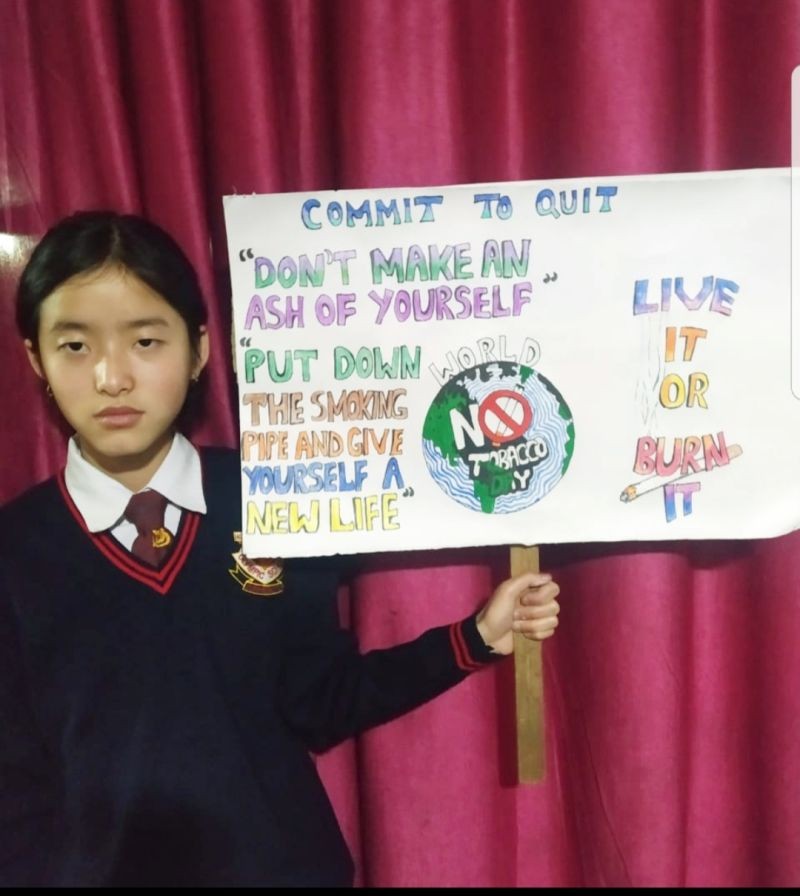 COMMIT TO QUIT
"DON'T MAKE AN
ASH OF YOURSELF"
"PUT DOWN
THE SMOKING
PIPE AND GIVE
YOURSELF A
NEW LIFE"
WORLD
NO
TOBACCO
DAY
LIVE
IT
OR
BURN
IT